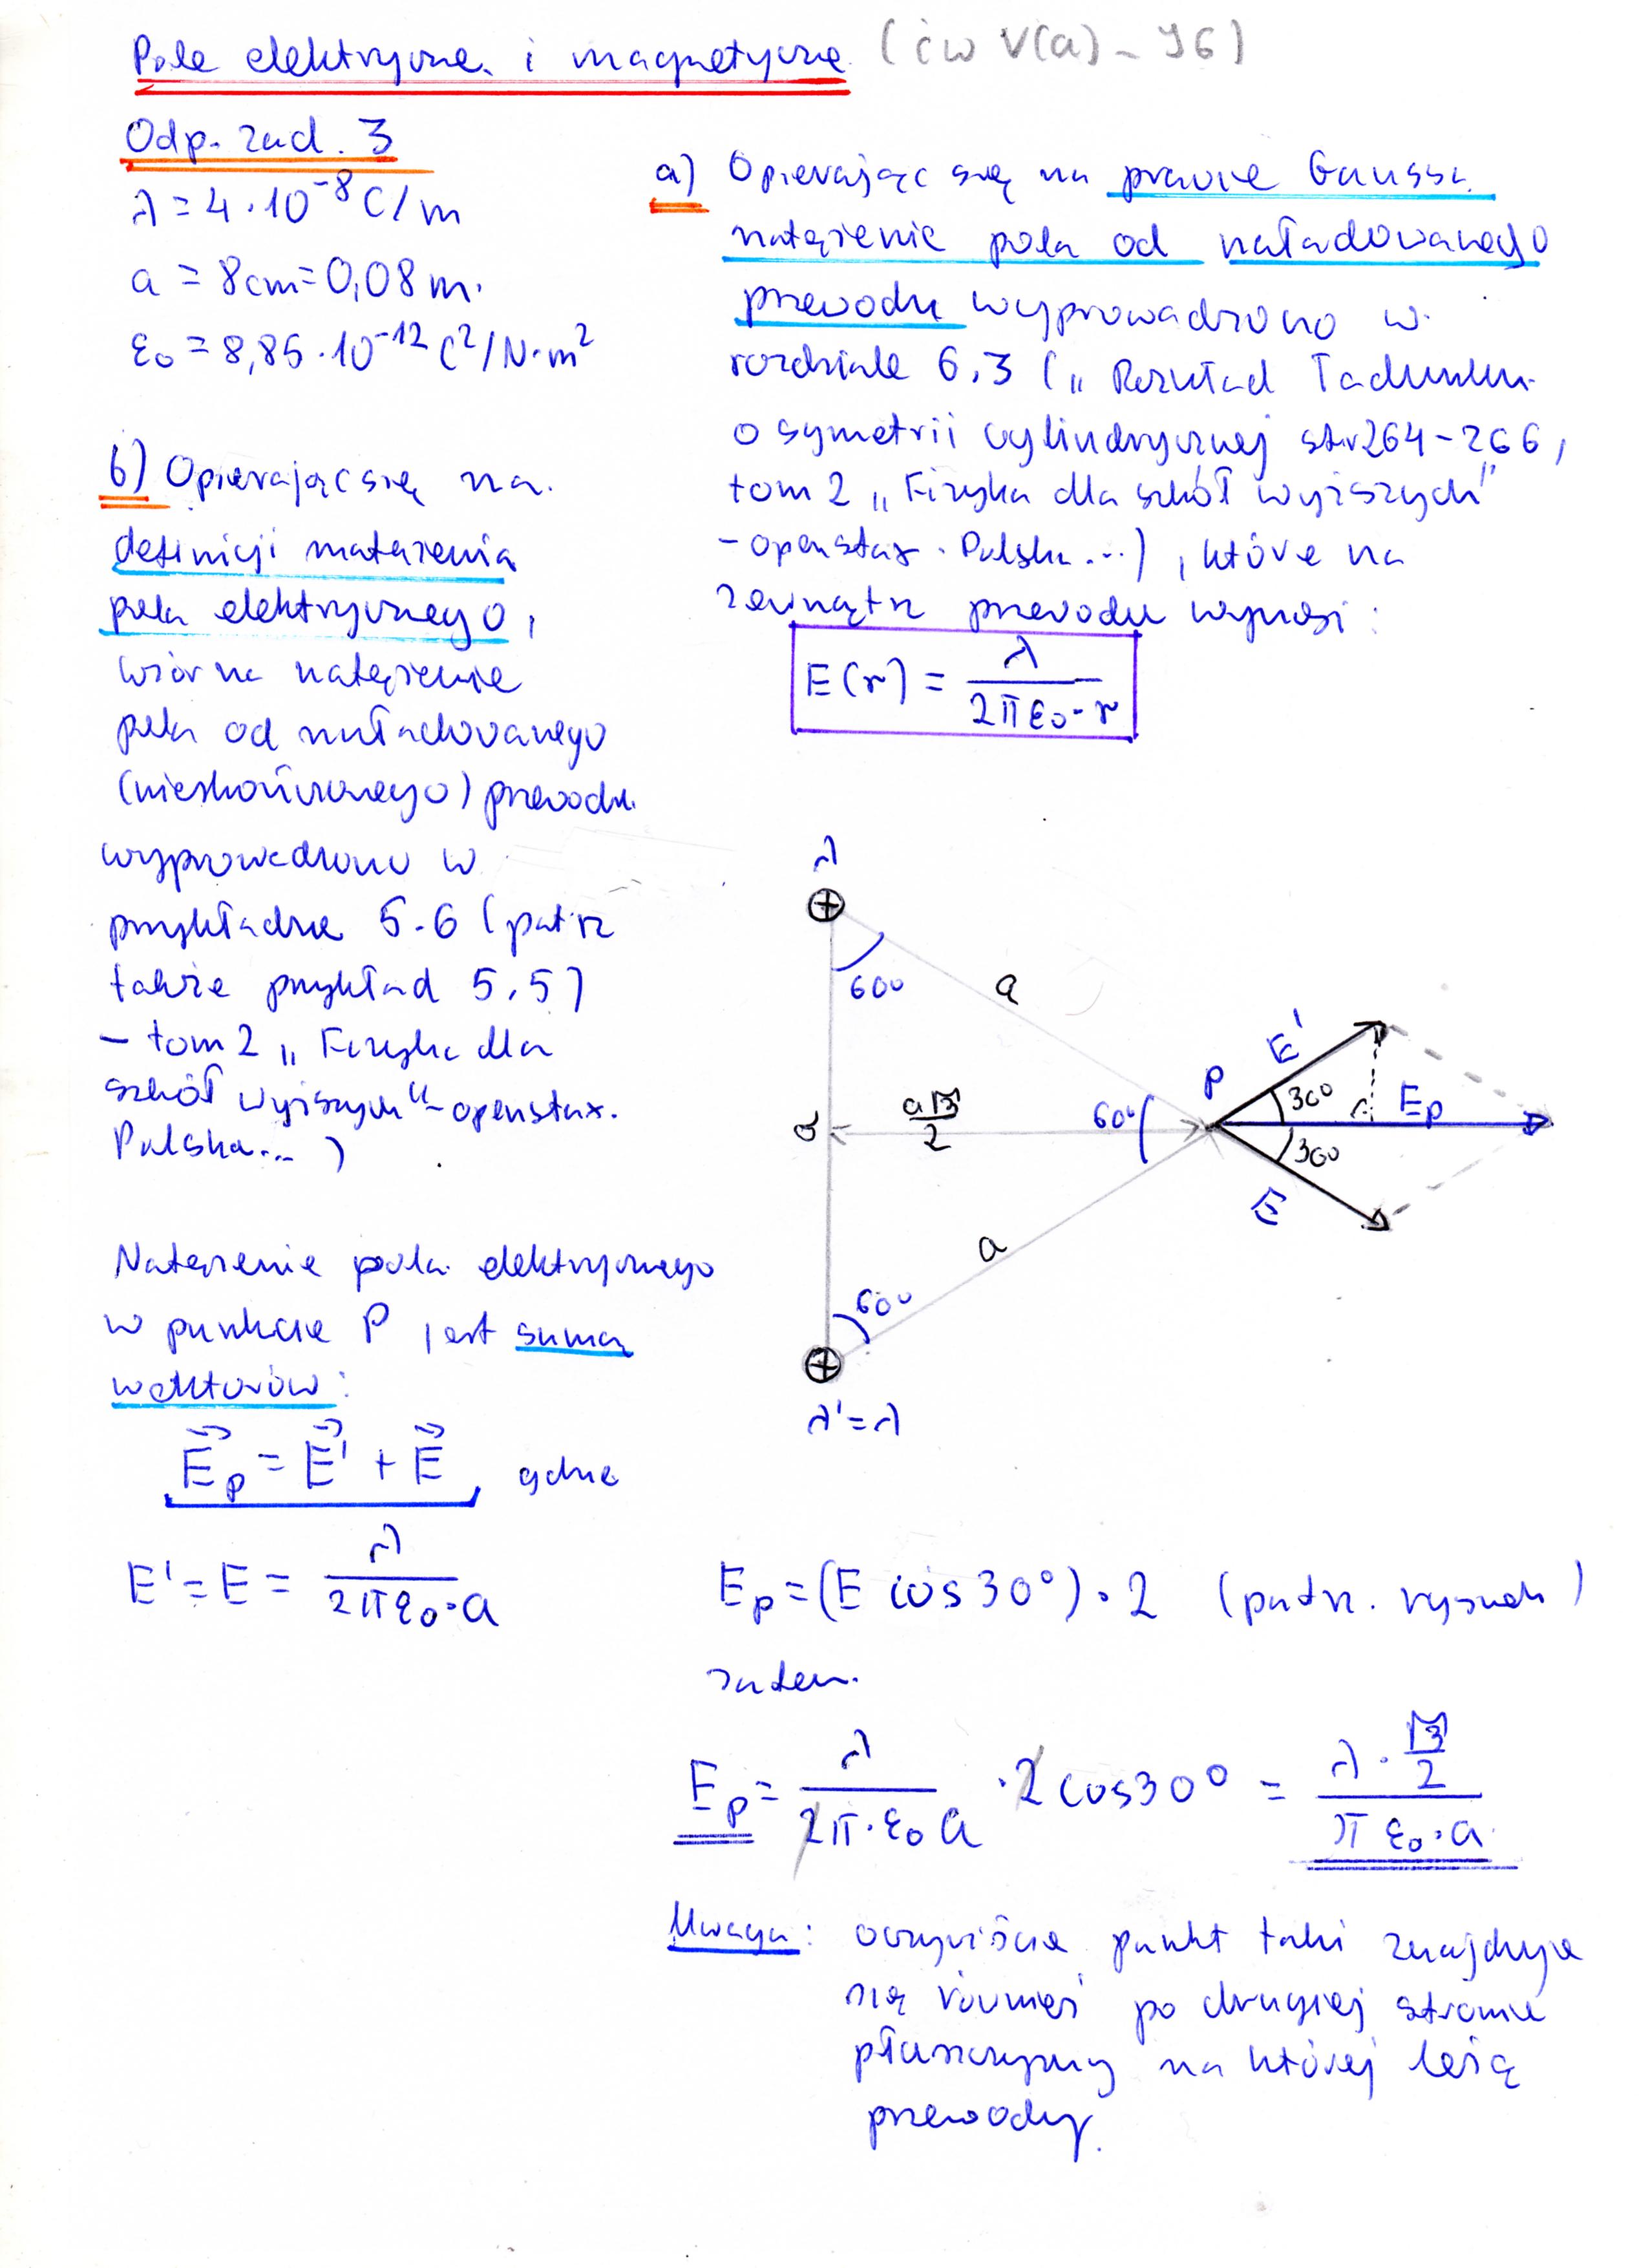 Pole elektryczne i magnetyczne (ćw V(a) - 96)
Odp. zad. 3
λ = 4·10⁻⁸ C/m
a = 8cm = 0,08 m.
ε₀ = 8,85·10⁻¹² C²/N·m²
a) Opierając się na prawie Gaussa
natężenie pola od naładowanego
przewodu wyprowadzono w
rozdziale 6.3 („Rozkład ładunku
o symetrii cylindrycznej str 264-266,
tom 2 „Fizyka dla szkół wyższych"
- openstax. Polska...), które na
zewnątrz przewodu wynosi:
E(r) = λ / 2πε₀·r
b) Opierając się na
definicji natężenia
pola elektrycznego,
wzór na natężenie
pola od naładowanego
(nieskończonego) przewodu
wyprowadzono w
przykładzie 5.6 (patrz
także przykład 5.5)
- tom 2 „Fizyka dla
szkół wyższych" - openstax.
Polska...)
λ
60°
a
a
a√3/2
60°
P
E'
30°
Ep
30°
E
a
60°
λ' = λ
Natężenie pola elektrycznego
w punkcie P jest sumą
wektorów:
E⃗p = E⃗' + E⃗, gdzie
E' = E = λ / 2πε₀·a
Ep = (E cos 30°)·2 (patrz. rysunek)
zatem
Ep = λ / 2π·ε₀a · 2 cos 30° = λ·√3/2 / πε₀·a
Uwaga: oczywiście punkt taki znajduje
się również po drugiej stronie
płaszczyzny na której leżą
przewody.